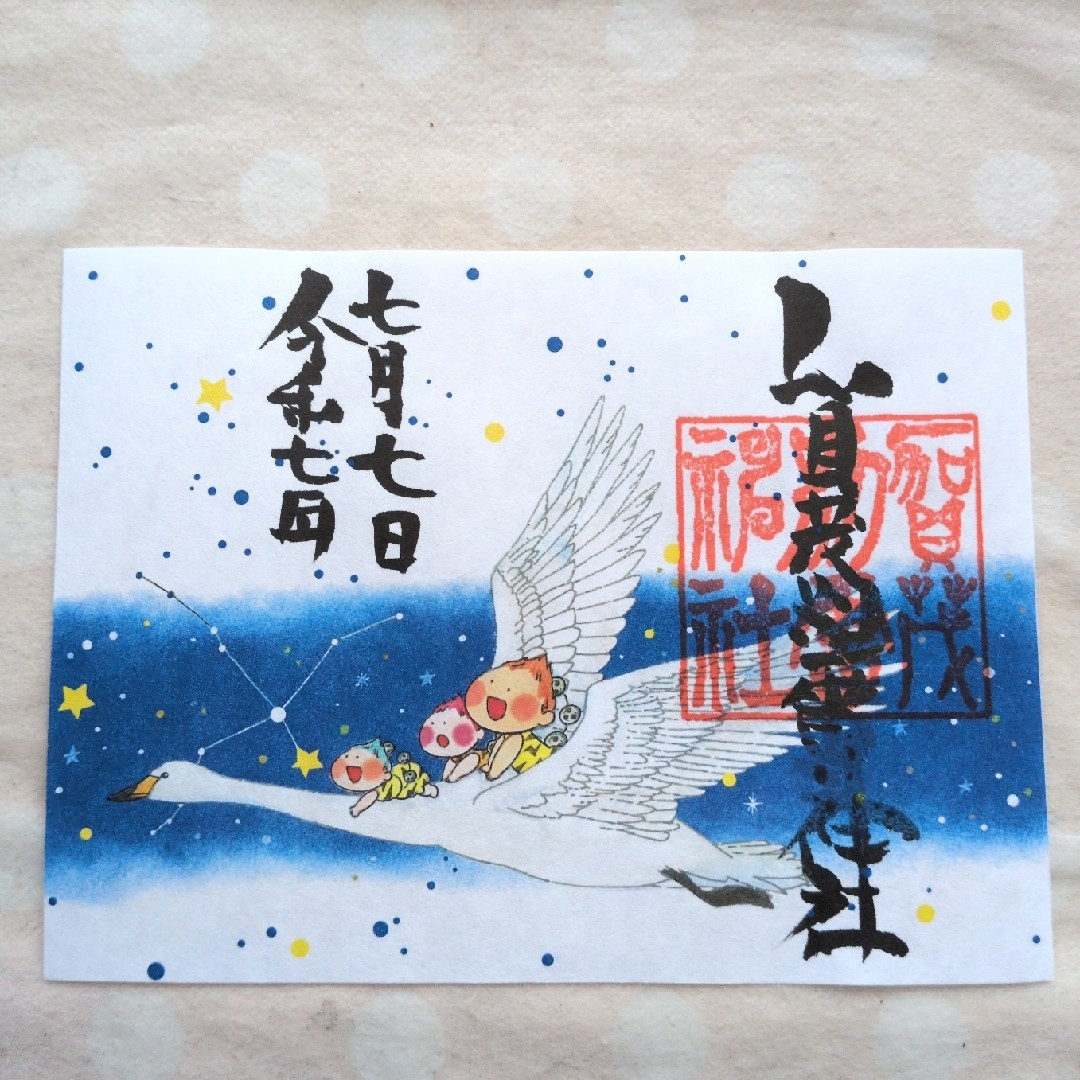 賀茂別雷神社
賀茂
別雷
神社
令和七年
七月七日